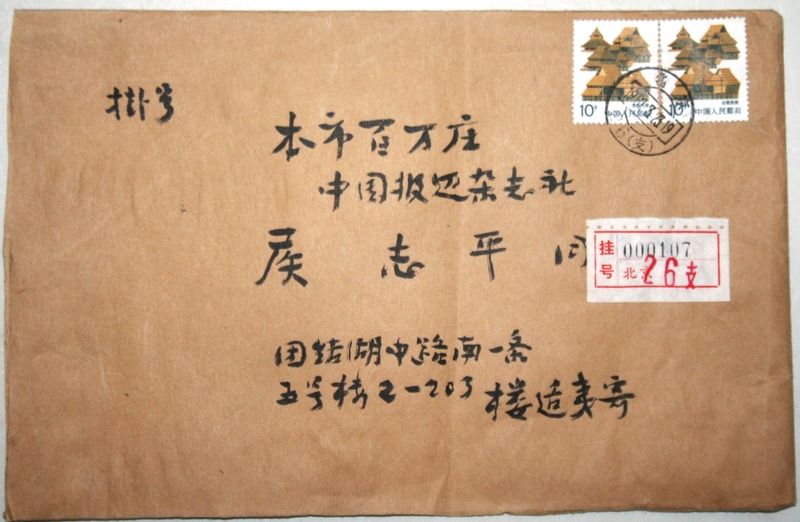 掛号
本市百万庄
中国报道杂志社
侯志平同
团结湖中路南一条
五号楼2-203 楼适夷寄
10分
中国人民邮政
10分
中国人民邮政
北京
26(支)
挂号
000107
北京
26支